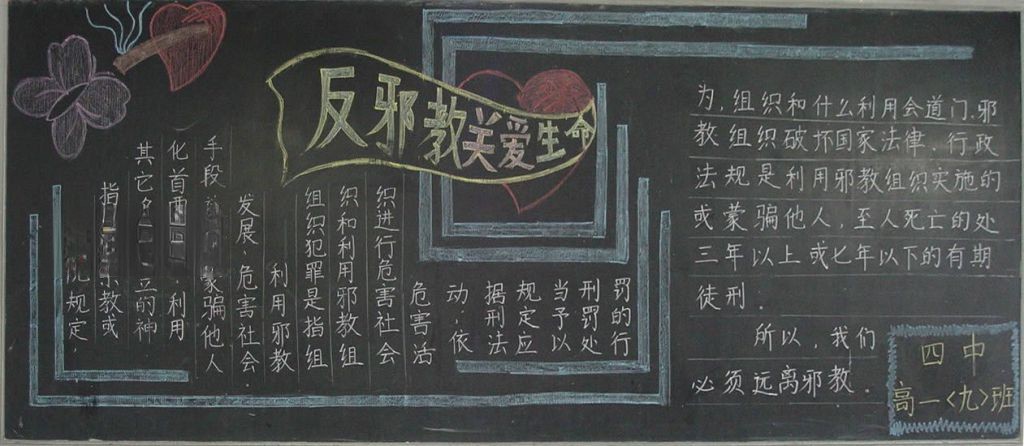 反邪教关爱生命
规定,
指 教或
其它 立的神
化首 利用
手段 蒙骗他人
发展、危害社会.
利用邪教
组织犯罪是指组
织和利用邪教组
织进行危害社会
危害活
动.依
据刑法
规定应
当予以
刑罚处
罚的行
为,组织和什么利用会道门.邪
教组织破坏国家法律.行政
法规是利用邪教组织实施的
或蒙骗他人,至人死亡的处
三年以上或七年以下的有期
徒刑.
所以,我们
必须远离邪教.
四中
高一<九>班